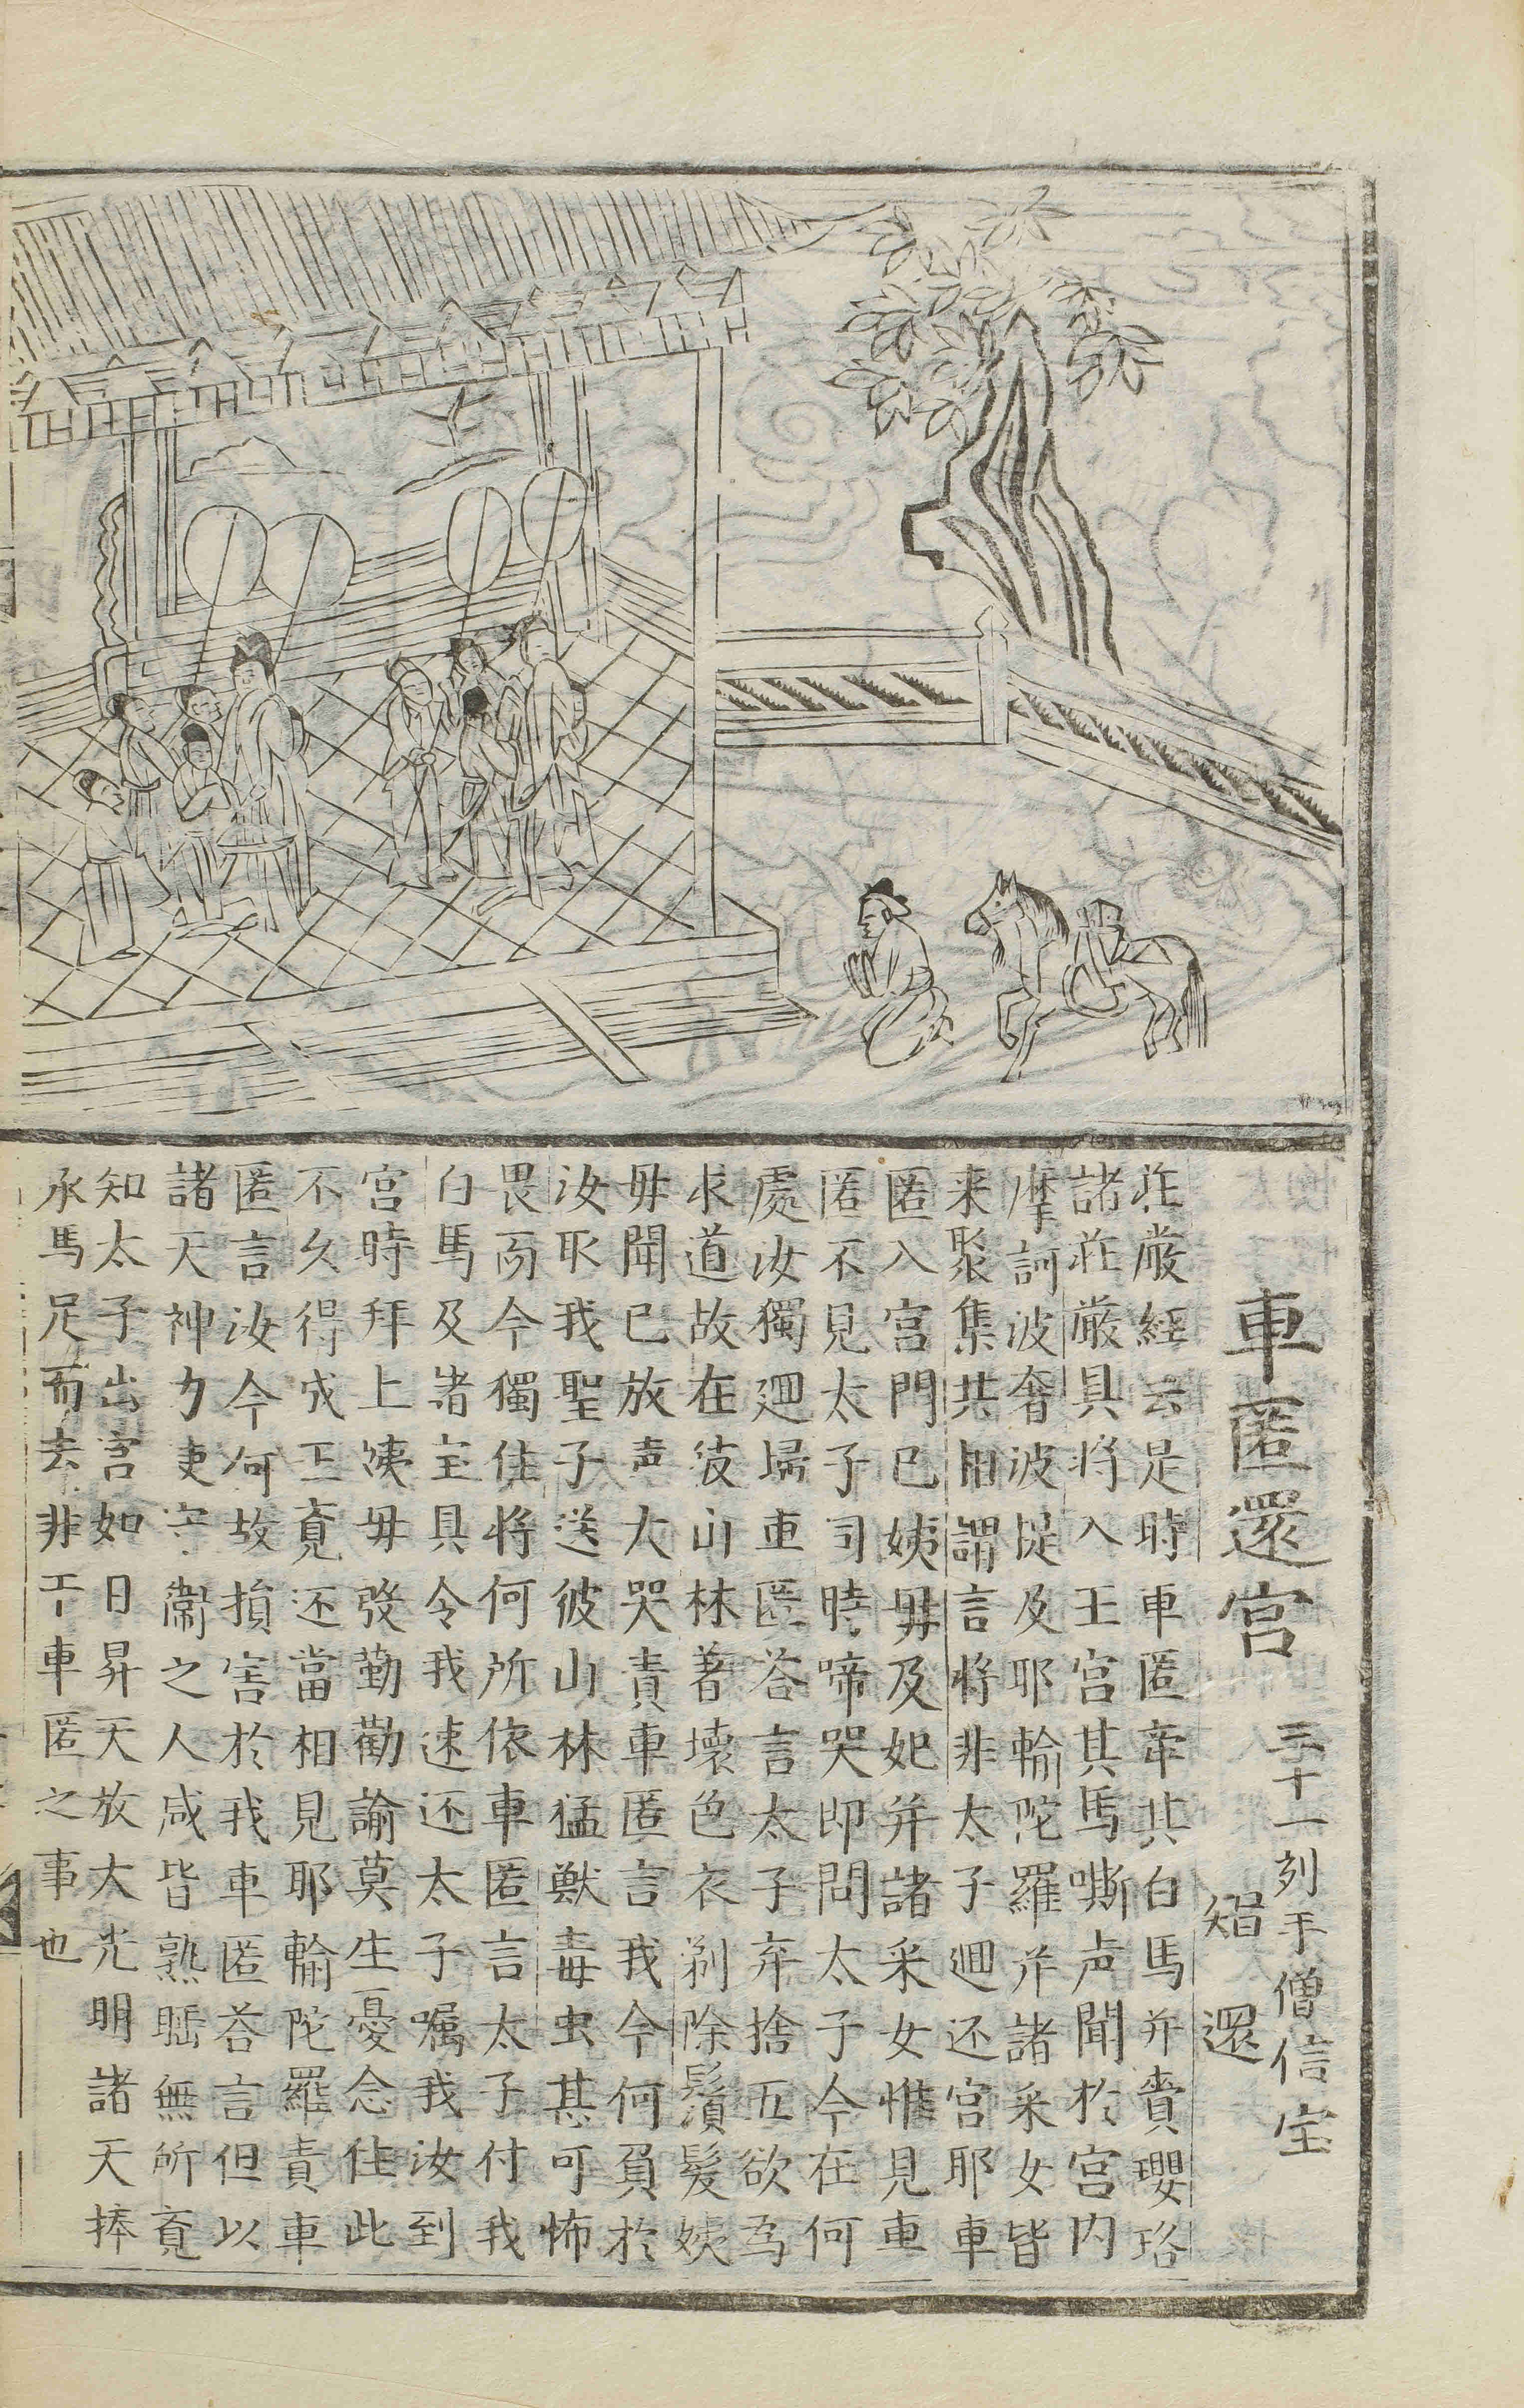 車匿還宮 三十一 刻手僧信宝
智還
荘厳経云是時車匿牽其白馬并賫瓔珞
諸荘厳具将入王宮其馬嘶声聞於宮内
摩訶波奢波提及耶輸陀羅并諸采女皆
来聚集共相謂言将非太子迴还宮耶車
匿入宮門已姨毋及妃并諸采女惟見車
匿不見太子司時啼哭即問太子今在何
處汝獨迴埽車匿荅言太子弃捨五欲為
求道故在彼山林著壊色衣剃除鬚髮姨
毋聞已放声大哭責車匿言我今何負於
汝取我聖子送彼山林猛獸毒虫甚可怖
畏而今獨住将何所依車匿言太子付我
白馬及诸宝具令我速还太子嘱我汝到
宮時拜上姨毋發勤勸諭莫生憂念住此
不久得成正覔还當相見耶輸陀羅責車
匿言汝今何故損害於我車匿荅言但以
諸天神力吏守衛之人咸皆熟眠無所覔
知太子出宮如日昇天放大光明諸天捧
承馬足而去非干車匿之事也